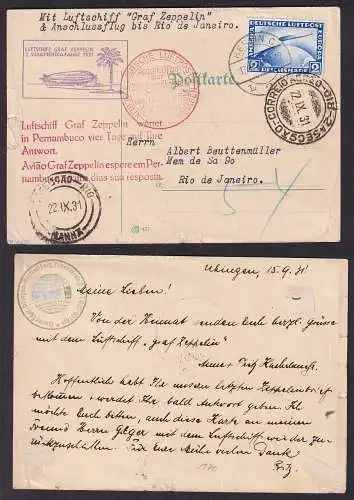 Mit Luftschiff "Graf Zeppelin"
& Anschlussflug bis Rio de Janeiro.
LUFTSCHIFF GRAF ZEPPELIN
2. SÜDAMERIKAFAHRT 1931
Postkarte
DEUTSCHE LUFTPOST
2
Luftschiff Graf Zeppelin wartet
in Pernambuco vier Tage auf Ihre
Antwort.
Avião Graf Zeppelin espera em Per-
nambuco dias sua resposta.
Herrn
Albert Beuttenmüller
Mem de Sa 80
Rio de Janeiro.
22 IX 31
22 IX. 31
MANHÃ
Uhingen, 15.9.31
Meine Lieben!
Von der Heimat senden Euch herzl. Grüsse
mit dem Luftschiff „Graf Zeppelin"
Fritz
Hoffentlich habt Ihr unseren letzten Zeppelinbrief
bekommen & werdet Ihr bald Antwort geben. Ich
möchte Euch bitten, auch diese Karte an meinen
Freund Herrn Gager mit dem Luftschiff wieder zu-
rückzuschicken. Für Eure Mühe vielen Dank
Fritz.